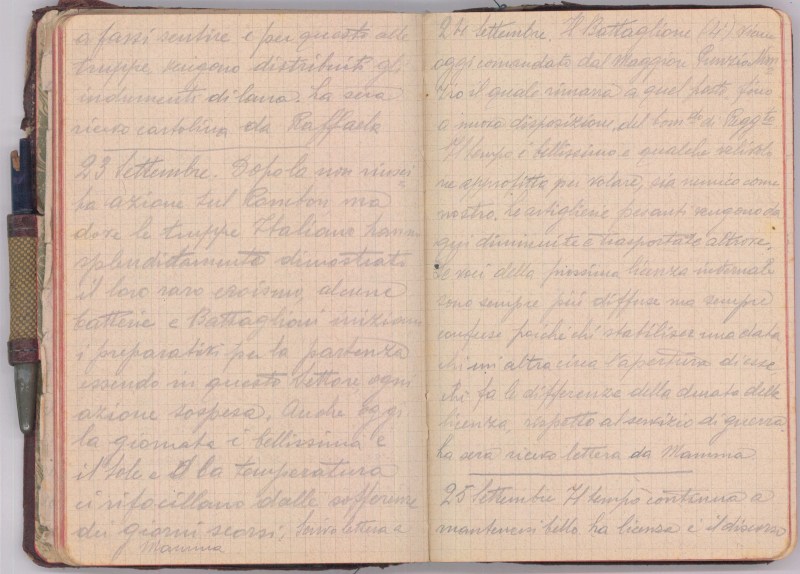 a farsi sentire e per questo alle
truppe vengono distribuiti gli
indumenti di lana. La sera
ricevo cartolina da Raffaele
23 Settembre. Dopo la non riusci=
ta azione sul Rombon ma
dove le truppe Italiane hanno
splendidamente dimostrato
il loro raro eroismo, alcune
batterie e Battaglioni iniziano
i preparativi per la partenza
essendo in questo settore ogni
azione sospesa. Anche oggi
la giornata è bellissima e
il sole e la temperatura
ci rifocillano dalle sofferenze
dei giorni scorsi. Scrivo lettera a
Mamma
24 Settembre. Il Battaglione viene
oggi comandato dal Maggiore
zio il quale rimarrà a quel posto fino
a nuova disposizione del Com.do di Regg.to
Il tempo è bellissimo e qualche velivolo
ne approfitta per volare, sia nemico come
nostro. Le artiglierie pesanti vengono da
qui diminuite o trasportate altrove.
Le voci della prossima licenza invernale
sono sempre più diffuse ma sempre
confuse poiché chi stabilisce una data
chi un'altra circa l'apertura di esse
chi fa le differenze della durata della
licenza, rispetto al servizio di guerra.
La sera ricevo lettera da Mamma
25 Settembre Il tempo continua a
mantenersi bello la licenza è il discorso